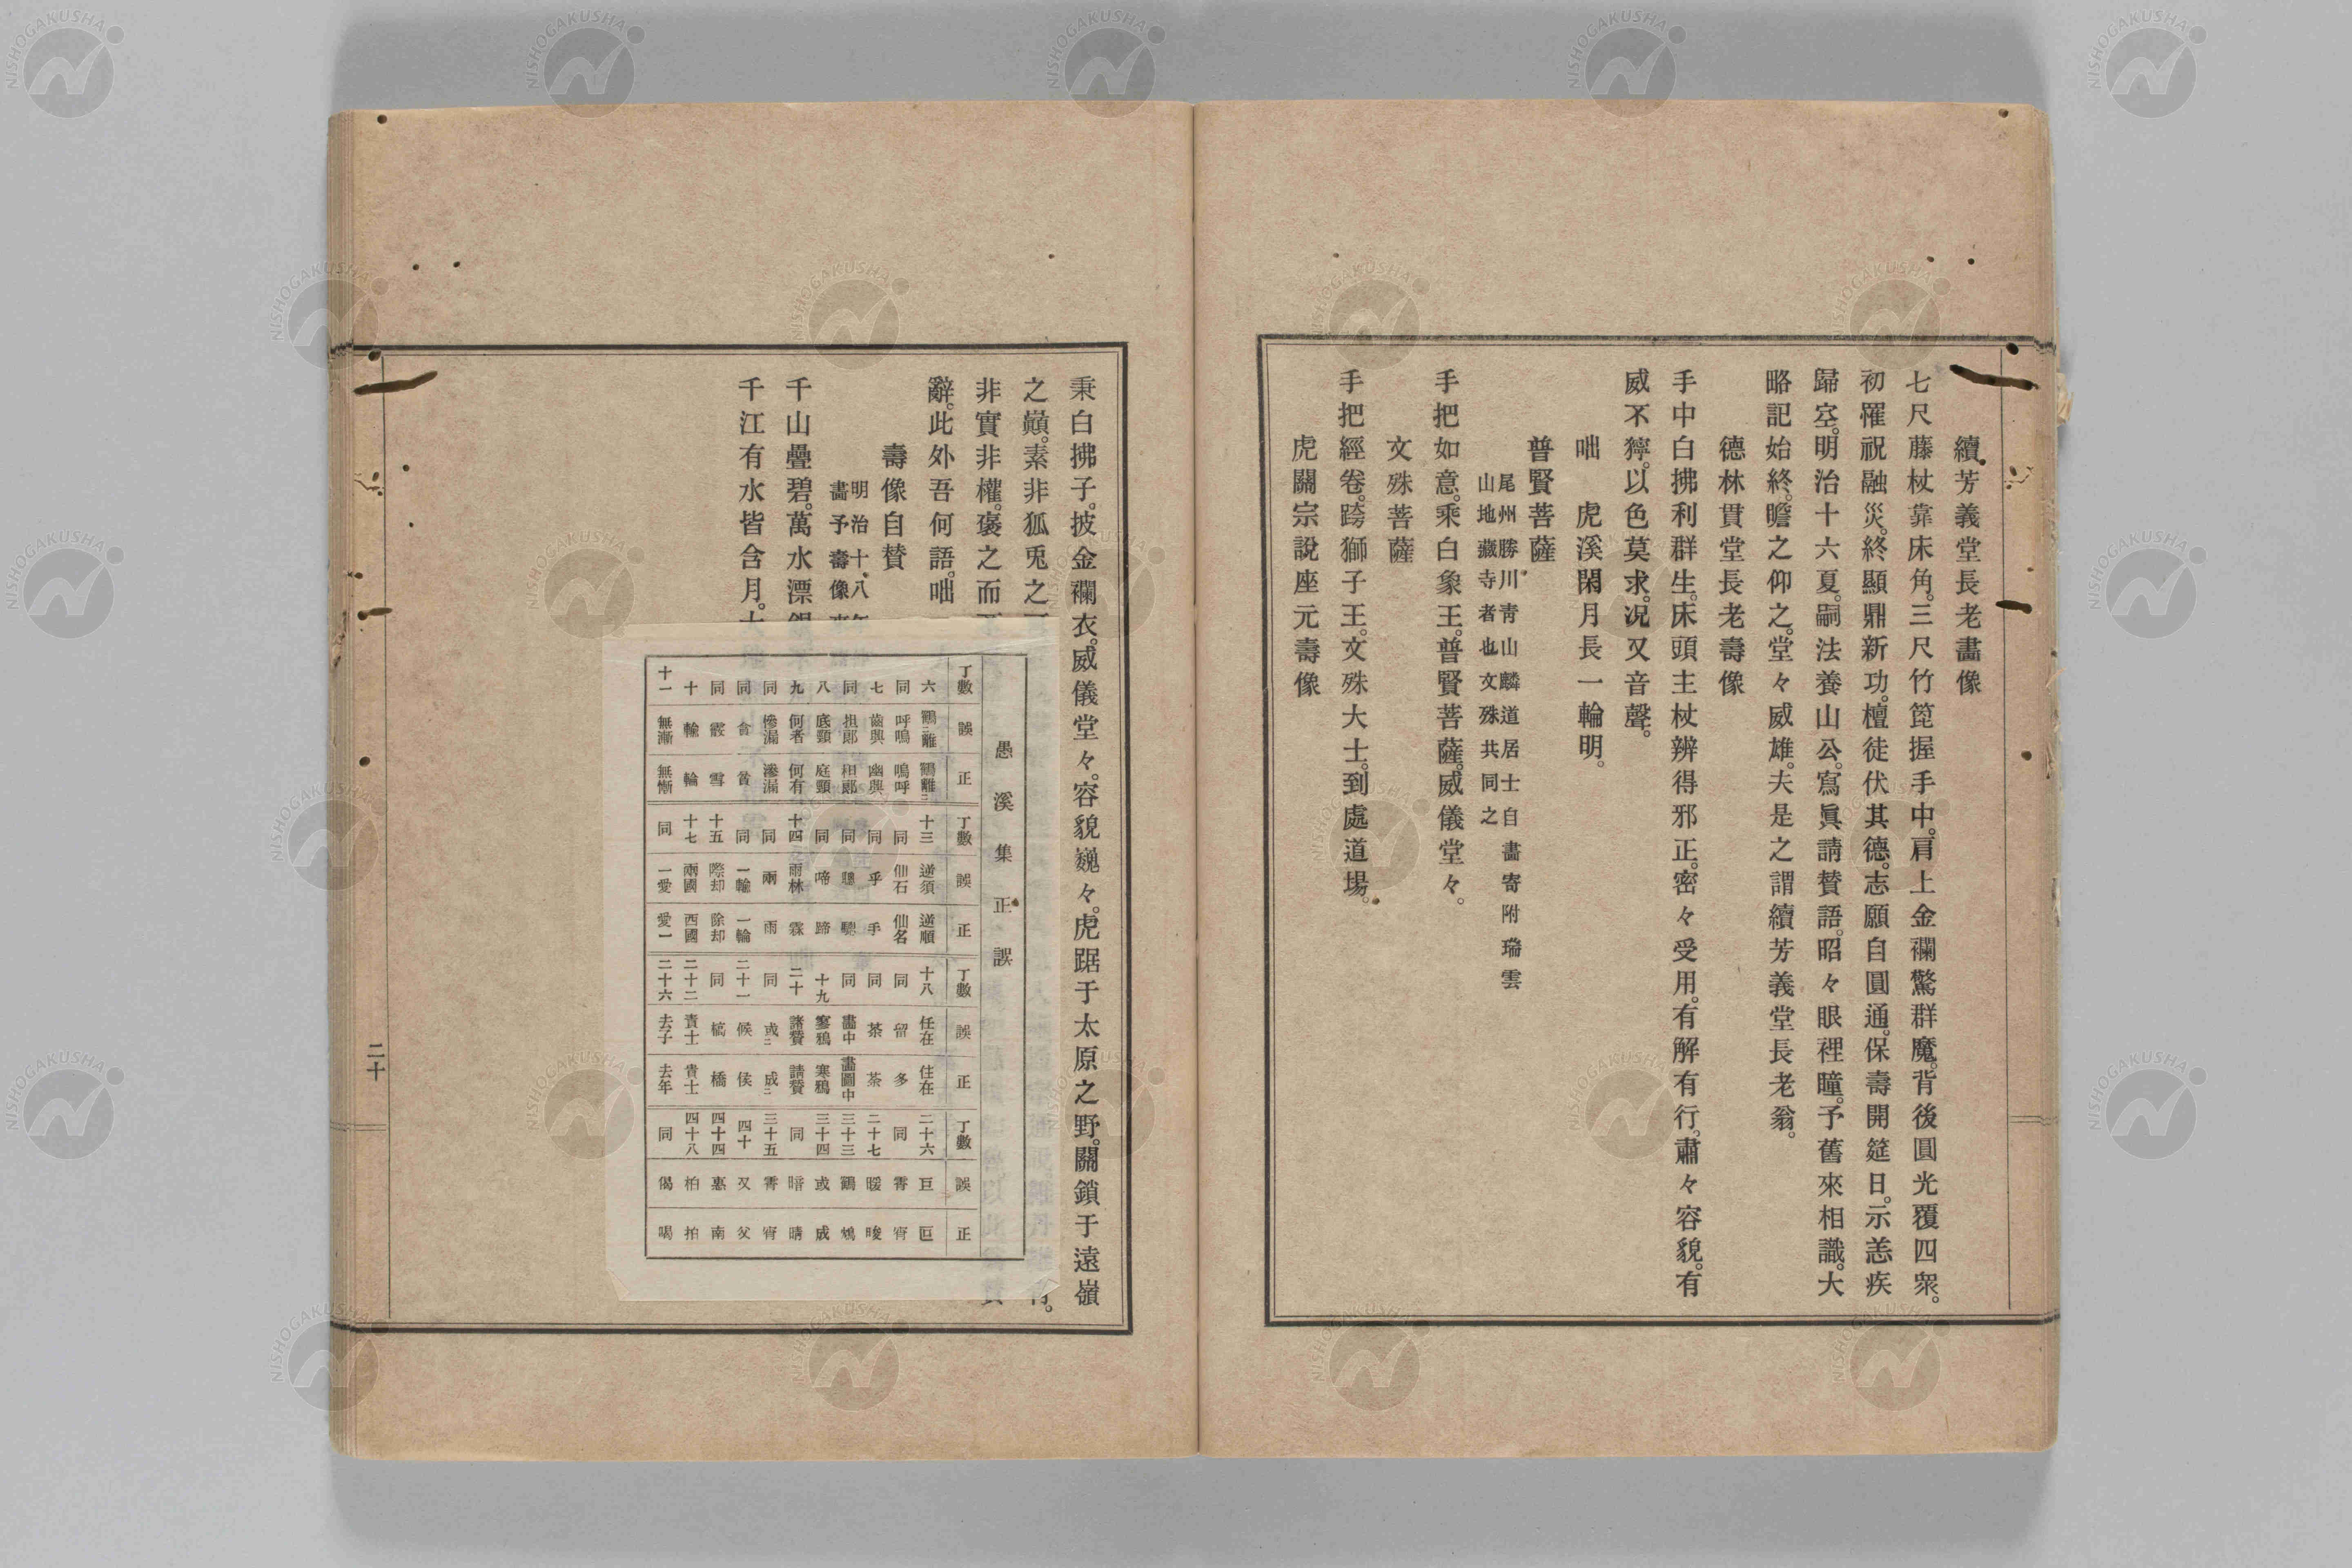 續芳義堂長老畫像
七尺藤杖靠床角。三尺竹箆握手中。肩上金襴驚群魔。背後圓光覆四衆。
初罹祝融災。終顯鼎新功。檀徒伏其德。志願自圓通。保壽開筵日。示恙疾
歸空。明治十六夏。嗣法養山公。寫眞請賛語。昭々眼裡瞳。予舊來相識。大
略記始終。瞻之仰之。堂々威雄。夫是之謂續芳義堂長老翁。
德林貫堂長老壽像
手中白拂利群生。床頭主杖辨得邪正。密々受用。有解有行。肅々容貌。有
威不獰。以色莫求。況又音聲。
咄　虎溪閑月長一輪明。
普賢菩薩
尾州勝川靑山麟道居士自畵寄附瑞雲
山地藏寺者也文殊共同之
手把如意。乘白象王。普賢菩薩。威儀堂々。
文殊菩薩
手把經卷。跨獅子王。文殊大士。到處道場。
虎關宗說座元壽像
秉白拂子。披金襴衣。威儀堂々。容貌巍々。虎踞于太原之野。關鎖于遠嶺
之巓。素非狐兎之
非實非權。褒之而
辭。此外吾何語。咄
壽像自賛
明治十八年
畵予壽像
千山疊碧。萬水漂
千江有水皆含月。
二十
愚溪集正誤
丁數 誤 正 丁數 誤 正 丁數 誤 正 丁數 誤 正
六 鶴離 鶴離 十三 逆須 逆順 十八 任在 住在 二十六 巨 叵
同 呼嗚 嗚呼 同 仙石 仙名 同 留 多 同 霄 宵
七 齒興 幽興 同 乎 手 同 茶 荼 二十七 暖 晙
同 担郞 相郞 同 聽 驄 同 畵中 畵圖中 三十三 鶴 鴆
八 底頸 庭頸 同 啼 蹄 十九 寒鴉 寒鴉 三十四 或 成
九 何者 何有 十四 雨林 霖 二十 諸賛 請賛 同 暗 晴
同 慘漏 滲漏 同 兩 雨 同 或 成 三十五 霄 宵
同 同 一輸 一輪 二十一 候 侯 四十 又 父
同 霰 雪 十五 際却 除却 同 槁 橋 四十四 惠 南
十 輸 輪 十七 兩國 西國 二十二 責士 貴士 四十八 柏 拍
十一 無漸 無慚 同 一愛 愛一 二十六 去子 去年 同 偈 喝